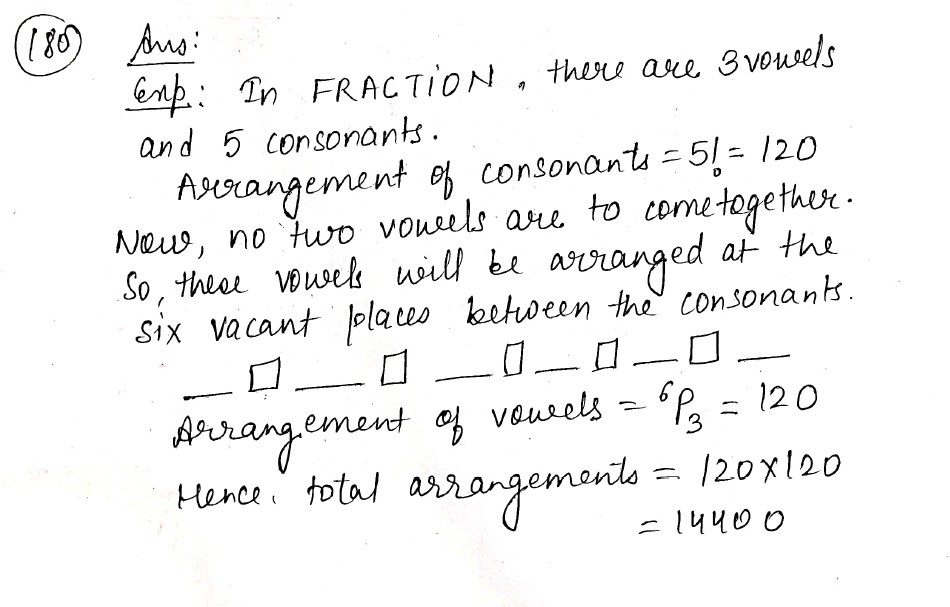 180 Ans:
Exp.: In FRACTION, there are 3 vowels
and 5 consonants.
Arrangement of consonants = 5! = 120
Now, no two vowels are to come together.
So, these vowels will be arranged at the
six vacant places between the consonants.
_ □ _ □ _ □ _ □ _ □ _
Arrangement of vowels = ⁶P₃ = 120
Hence, total arrangements = 120 × 120
= 14400